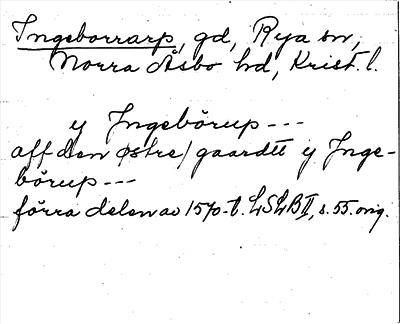 Ingeborrarp, gd, Rya sn,
Norra Åsbo hd, Krist. l.
y Jngebörup ---
aff den østre/gaardtt y Jnge-
börup ---
förra delen av 1570-t. LSLB II, s. 55. orig.